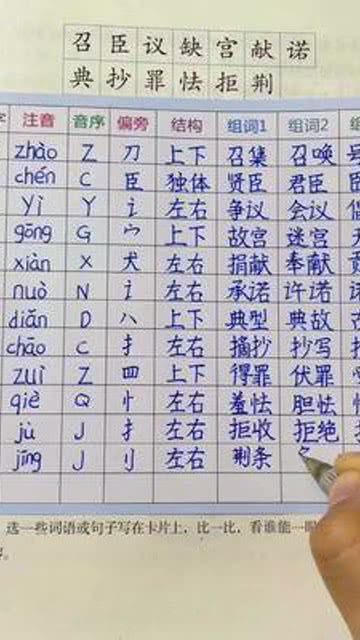 召臣议缺宫献诺
典抄罪怯拒荆
字 注音 音序 偏旁 结构 组词1 组词2
zhào Z 刀 上下 召集 召唤
chén C 臣 独体 贤臣 君臣
yì Y 讠 左右 争议 会议
gōng G 宀 上下 故宫 迷宫
xiàn X 犬 左右 捐献 奉献
nuò N 讠 左右 承诺 许诺
diǎn D 八 上下 典型 典故
chāo C 扌 左右 摘抄 抄写
zuì Z 罒 上下 得罪 伏罪
qiè Q 忄 左右 羞怯 胆怯
jù J 扌 左右 拒收 拒绝
jīng J 刂 左右 荆条
选一些词语或句子写在卡片上，比一比，看谁能一眼